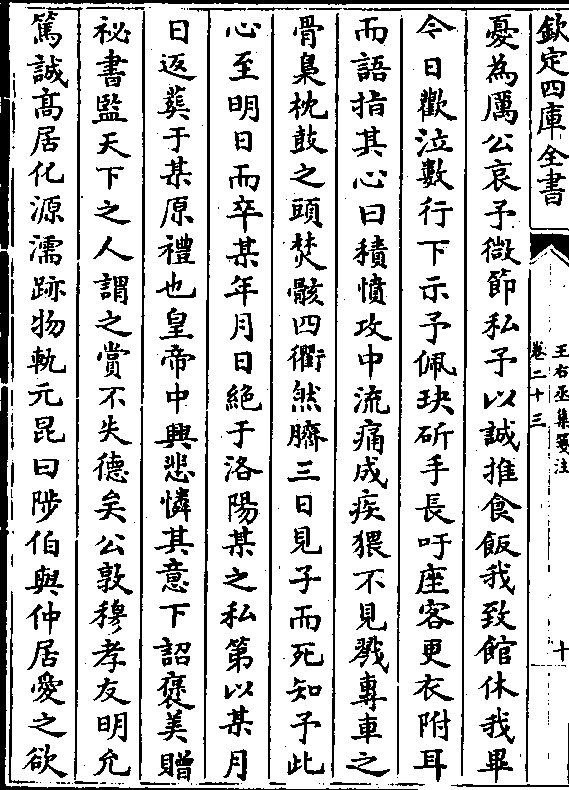 欽定四庫全書
王右丞集箋注
卷二十三
十
憂為厲公哀予微節私予以誠推食飯我致館休我畢
今日歡泣數行下示予佩玦斫手長吁座客更衣附耳
而語指其心曰積憤攻中流痛成疾猥不見戮專車之
骨梟枕鼓之頭焚骸四衢然臍三日見子而死知予此
心至明日而卒某年月日絕于洛陽某之私第以某月
日返葬于某原禮也皇帝中興悲憐其意下詔褒美贈
祕書監天下之人謂之賞不失德矣公敦穆孝友明允
篤誠髙居化源濡跡物軌元昆曰陟伯與仲居愛之欲